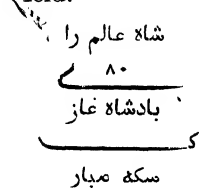 شاه عالم را
۸۰
بادشاه غاز
سکه مبار